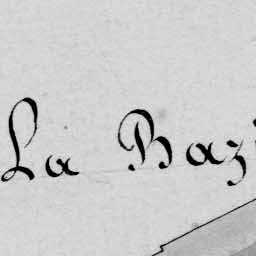 La Baz